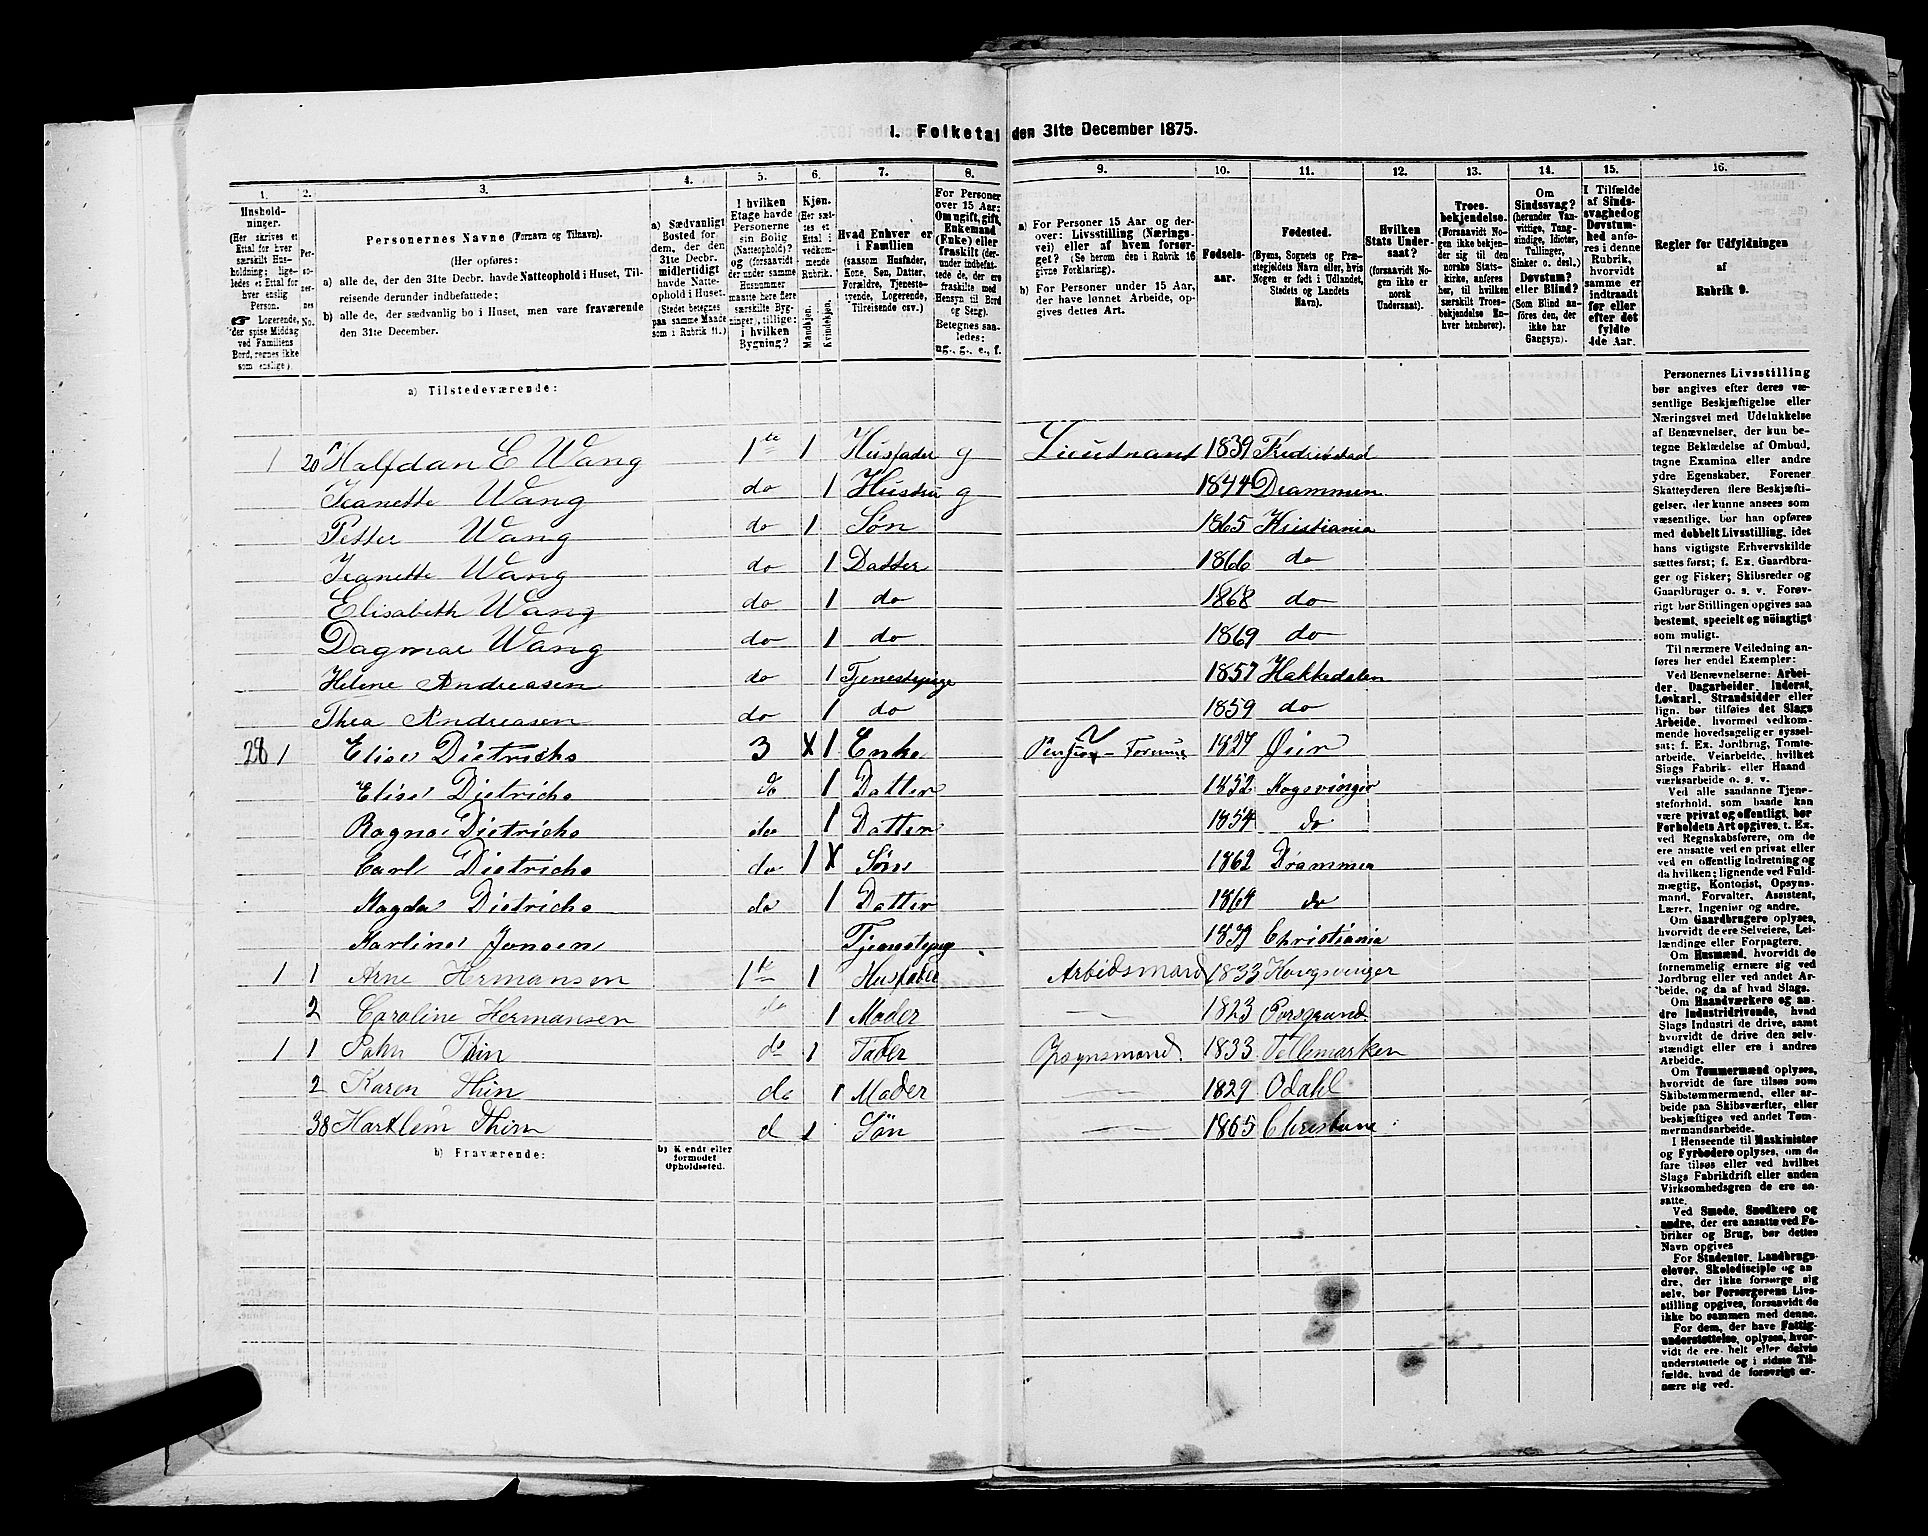 1. Folketal den 31te December 1875.
1. 2. 3. 4. 5. 6. 7. 8. 9. 10. 11. 12. 13. 14. 15. 16.
Husholdninger. (Her skrives et Ettal for hver særskilt Husholdning; ligeledes et Ettal for hver enslig Person. ☞ Logerende, der spise Middag ved Familiens Bord, regnes ikke som enslige).
Personernes No.
Personernes Navne (Fornavn og Tilnavn).
(Her opføres:
a) alle de, der den 31te Decbr. havde Natteophold i Huset, Tilreisende derunder indbefattede;
b) alle de, der sædvanlig bo i Huset, men vare fraværende den 31te December.
a) Sædvanligt Bosted for dem, der den 31te Decbr. midlertidigt havde Natteophold i Huset. (Stedet betegnes paa samme Maade som i Rubrik 11.)
I hvilken Etage havde Personerne sin Bolig (Natteophold)? og (forsaavidt der under samme Husnummer maatte høre flere særskilte Bygninger), tillige: i hvilken Bygning?
Kjøn. (Her sættes et Ettal i vedkommende Rubrik. Mandkjøn. Kvindekjøn.
Hvad Enhver er i Familien (saasom Husfader, Kone, Søn, Datter, Forældre, Tjenestetyende, Logerende, Tilreisende osv.)
For Personer over 15 Aar: Om ugift, gift, Enkemand (Enke) eller fraskilt (derunder indbefattede de, der ere fraskilte med Hensyn til Bord og Seng). Betegnes saaledes: ug., g., e., f.
a) For Personer 15 Aar og derover: Livsstilling (Næringsvei) eller af hvem forsørget? (Se herom den i Rubrik 16 givne Forklaring).
b) For Personer under 15 Aar, der have lønnet Arbeide, opgives dettes Art.
Fødselsaar.
Fødested. (Byens, Sognets og Præstegjeldets Navn eller, hvis Nogen er født i Udlandet, Stedets og Landets Navn).
Hvilken Stats Undersaat? (forsaavidt Nogen ikke er norsk Undersaat).
Troesbekjendelse. (Forsaavidt Nogen ikke bekjender sig til den norske Statskirke, anføres her, til hvilken særskilt Troesbekjendelse Enhver henhører).
Om Sindssvag? (herunder Vanvittige, Tungsindige, Idioter, Tullinger, Sinker o. desl.) Døvstum? eller Blind? (Som Blind anføres den, der ikke har Gangsyn).
I Tilfælde af Sindssvaghed og Døvstumhed anføres i denne Rubrik, hvorvidt samme er indtraadt før eller efter det fyldte 4de Aar.
Regler for Udfyldningen af Rubrik 9.
a) Tilstedeværende:
1 20 Halfdan E Wang 1te 1 Husfader g Lieutnant 1839 Fredrikstad
Jeanette Wang do 1 Hustru g 1844 Drammen
Petter Wang do 1 Søn 1865 Kristiania
Jeanette Wang do 1 Datter 1866 do
Elisabeth Wang do 1 do 1868 do
Dagmar Wang do 1 do 1869 do
Helene Andreasen do 1 Tjenestepige 1857 Hakkedalen
Thea Andreasen do 1 do 1859 do
28 1 Elise Dietrichs 3 X 1 Enke 1827 Øier
Elise Dietrichs do 1 Datter 1852 Kogsvinger
Ragna Dietrichs do 1 Datter 1854 do
Carl Dietrichs do 1 X Søn 1862 Drammen
Magda Dietrichs do 1 Datter 1864 do
Karline Jensen Tjenestepig 1839 Christiania
1 1 Arne Hermansen 1te 1 Husfader Arbidsmand 1833 Kongsvinger
2 Caroline Hermansen do 1 Moder 1823 Porsgrund
1 1 Thin do 1 Fader Opsynsmand. 1833 Tellemarken
2 Karen Thin do 1 Moder 1829 Odahl
38 Thin d 1 Søn 1865
b) Fraværende:
b) Kjendt eller formodet Opholdssted.
Personernes Livsstilling
bør angives efter deres væ-
sentlige Beskjæftigelse eller
Næringsvei med Udelukkelse
af Benævnelser, der kun be-
tegne Beklædelse af Ombud,
tagne Examina eller andre
ydre Egenskaber. Forener
Skatteyderen flere Beskjæfti-
gelser, der kunne ansees som
væsentlige, bør han opføres
med dobbelt Livsstilling, idet
hans vigtigste Erhvervskilde
sættes først; f. Ex. Gaardbru-
ger og Fisker; Skibsreder og
Gaardbruger o. s. v. Forøv-
rigt bør Stillingen opgives saa
bestemt, specielt og nöiagtigt
som muligt.
Til nærmere Veiledning an-
føres her endel Exempler:
Ved Benævnelserne: Arbei-
der, Dagarbeider, Inderst,
Løskarl, Strandsidder eller
lign. bør tilføies det Slags
Arbeide, hvormed vedkom-
mende hovedsagelig er syssel-
sat; f. Ex. Jordbrug, Tomte-
arbeide, Veiarbeide, hvilket
Slags Fabrik- eller Haand-
værksarbeide o. s. v.
Ved alle saadanne Tjene-
steforhold, som baade kan
være privat og offentligt, bør
Forholdets Art opgives, t. Ex.
ved Regnskabsførere, om de
ere ansatte ved en privat eller
ved en offentlig Indretning og
da hvilken; lignende ved Fuld-
mægtig, Kontorist, Opsyns-
mand, Forvalter, Assistent,
Lærer, Ingeniør og andre.
Om Gaardbrugere oplyses,
hvorvidt de ere Selveiere, Lei-
lændinge eller Forpagtere.
Om Husmænd, hvorvidt de
fornemmelig ernære sig ved
Jordbrug eller ved andet Ar-
beide, og da af hvad Slags.
Om Haandværkere og an-
dre Industridrivende, hvad
Slags Industri de drive, samt
hvorvidt de drive den selv-
stændigt eller ere i andres
Arbeide.
Om Tømmermænd oplyses,
hvorvidt de fare tilsøs som
Skibstømmermænd, eller ar-
beide paa Skibsværfter, eller
beskjæftiges ved andet Tøm-
mermandsarbeide.
I Henseende til Maskinister
og Fyrbødere oplyses, om de
fare tilsøs eller ved hvilket
Slags Fabrikdrift eller anden
Virksomhedsgren de ere an-
satte.
Ved Smede, Snedkere og
andre, der ere ansatte ved Fa-
briker og Brug, bør dettes
Navn opgives
For Studenter, Landbrugs-
elever, Skoledisciple og an-
dre, der ikke forsørge sig
selv, bør Forsørgerens Livs-
stilling opgives, forsaavidt de
ikke bo sammen med denne.
For dem, der have Fattig-
understøttelse, oplyses, hvor-
vidt de ere helt eller delvis
understøttede og i sidste Til-
fælde, hvad de forøvrigt er-
nære sig ved.